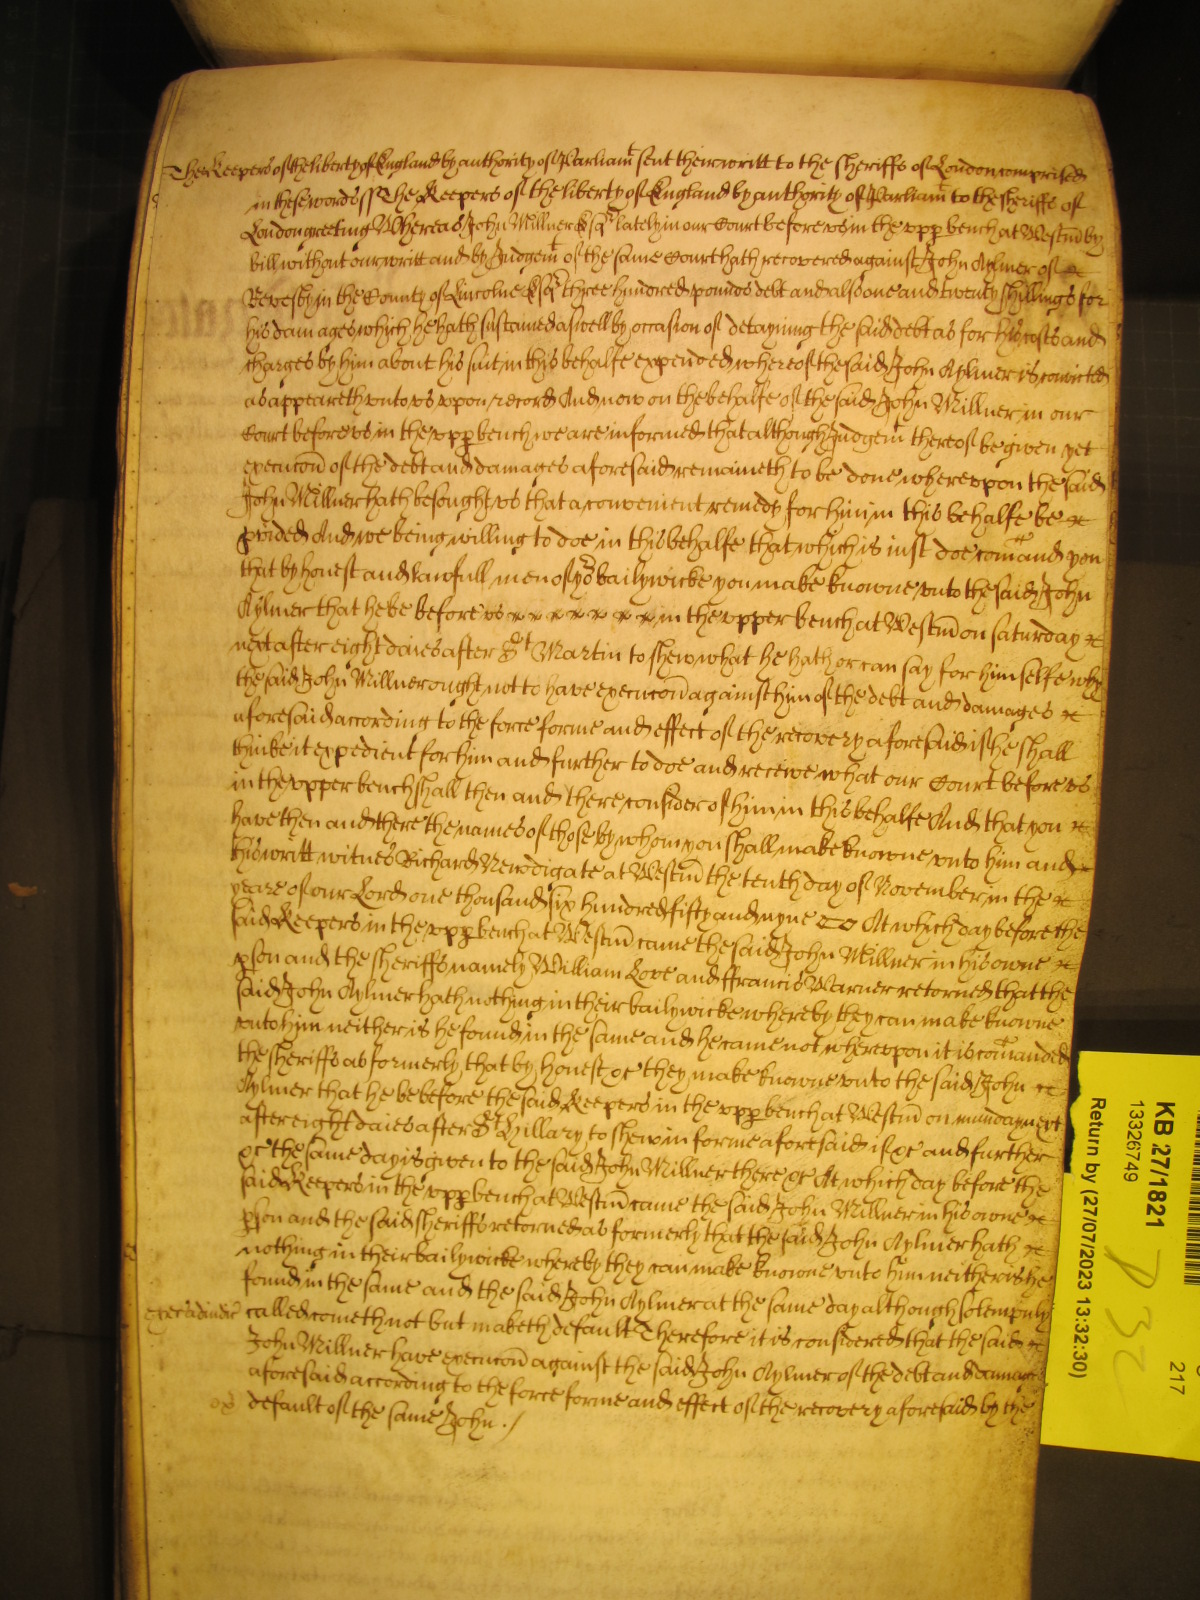 The Keepers of the liberty of England by authority of Parliamt sent their writt to the sheriffs of London comprised
in these words ss The Keepers of the liberty of England by authority of Parliamt to the sheriffs of
London greeting Whereas John Millner Esqr lately in our Court before us in the upp bench at Westm by
bill without our writt and by Judgemt of the same Court hath recovered against John Aylmer of
Revesby in the County of Lincolne Esqr three hundred pounds debt and also one and twenty shillings for
his damages which he hath sustained aswell by occasion of detayning the said debt as for his costs and
charges by him about his suit in this behalfe expended whereof the said John Aylmer is convicted
as appeareth unto us upon record And now on the behalfe of the said John Millner in our
Court before us in the upp bench we are informed that although Judgemt thereof be given yet
execucon of the debt and damages aforesaid remaineth to be done whereupon the said
John Millner hath besought us that a convenient remedy for him in this behalfe be
pvided And we being willing to doe in this behalfe that which is just doe comand you
that by honest and lawfull men of yor bailywicke you make knowne unto the said John
Aylmer that he be before us in the upper bench at Westm on saturday
next after eight daies after St Martin to shew what he hath or can say for himselfe why
the said John Millner ought not to have execucon against him of the debt and damages
aforesaid according to the force forme and effect of the recovery aforesaid if he shall
thinke it expedient for him and further to doe and receive what our Court before us
in the upper bench shall then and there consider of him in this behalfe And that you
have then and there the names of those by whom you shall make knowne unto him and
this writt witnes Richard Newdigate at Westm the tenth day of November in the
yeare of our Lord one thousand six hundred fifty and nyne At which day before the
said Keepers in the upp bench at Westm came the said John Millner in his owne
pson and the sheriffs namely William Love and ffrancis Warner retorned that the
said John Aylmer hath nothing in their bailywicke whereby they can make knowne
unto him neither is he found in the same and he came not whereupon it is comanded
the sheriffs as formerly that by honest &c they make knowne unto the said John
Aylmer that he be before the said Keepers in the upp bench at Westm on munday next
after eight daies after St Hillary to shew in forme aforesaid if &c and further
&c the same day is given to the said John Millner there &c At which day before the
said Keepers in the upp bench at Westm came the said John Millner in his owne
pson and the said sheriffs retorned as formerly that the said John Aylmer hath
nothing in their bailywicke whereby they can make knowne unto him neither is he
found in the same and the said John Aylmer at the same day although solempnly
called cometh not but maketh default Therefore it is considered that the said
John Millner have execucon against the said John Aylmer of the debt and damages
aforesaid according to the force forme and effect of the recovery aforesaid by the
default of the same John ./
KB 27/1821
13326749
Return by (27/07/2023 13:32:30)
217